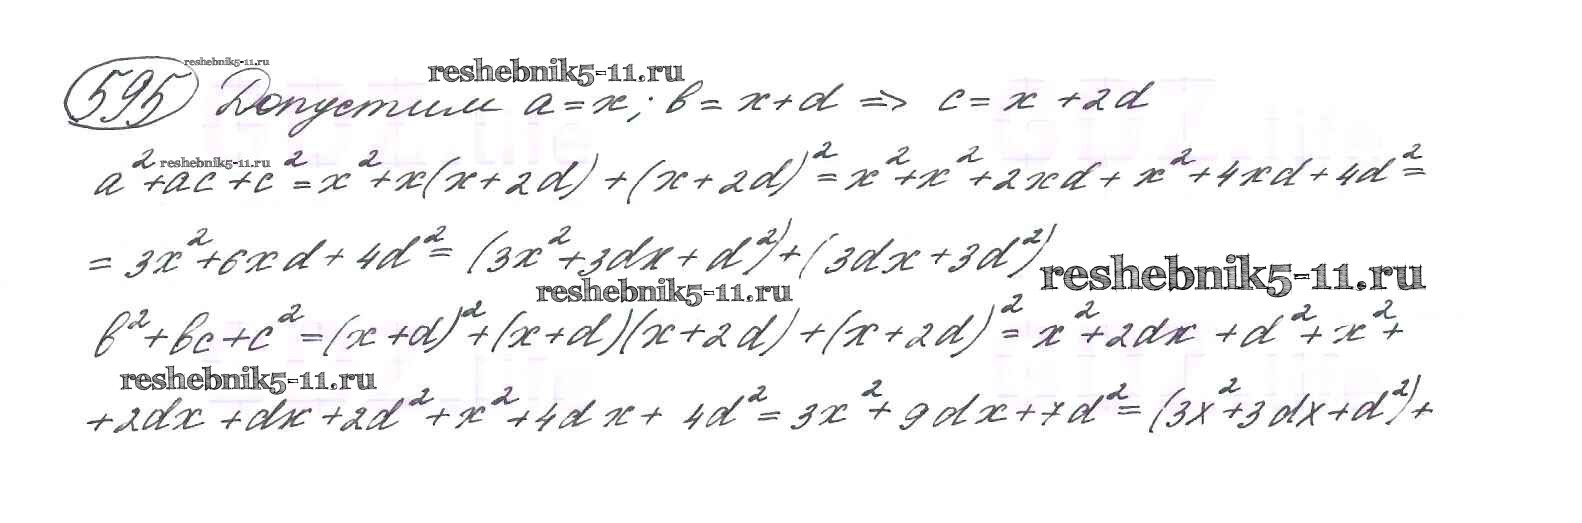 reshebnik5-11.ru
reshebnik5-11.ru
595 Допустим a = x; b = x + d => c = x + 2d
reshebnik5-11.ru
a² + ac + c² = x² + x(x + 2d) + (x + 2d)² = x² + x² + 2xd + x² + 4xd + 4d² =
= 3x² + 6xd + 4d² = (3x² + 3dx + d²) + (3dx + 3d²)
reshebnik5-11.ru
reshebnik5-11.ru
b² + bc + c² = (x + d)² + (x + d)(x + 2d) + (x + 2d)² = x² + 2dx + d² + x² +
reshebnik5-11.ru
+ 2dx + dx + 2d² + x² + 4dx + 4d² = 3x² + 9dx + 7d² = (3x² + 3dx + d²) +